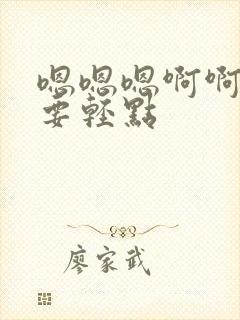 嗯嗯嗯啊啊
要轻點
廖家武